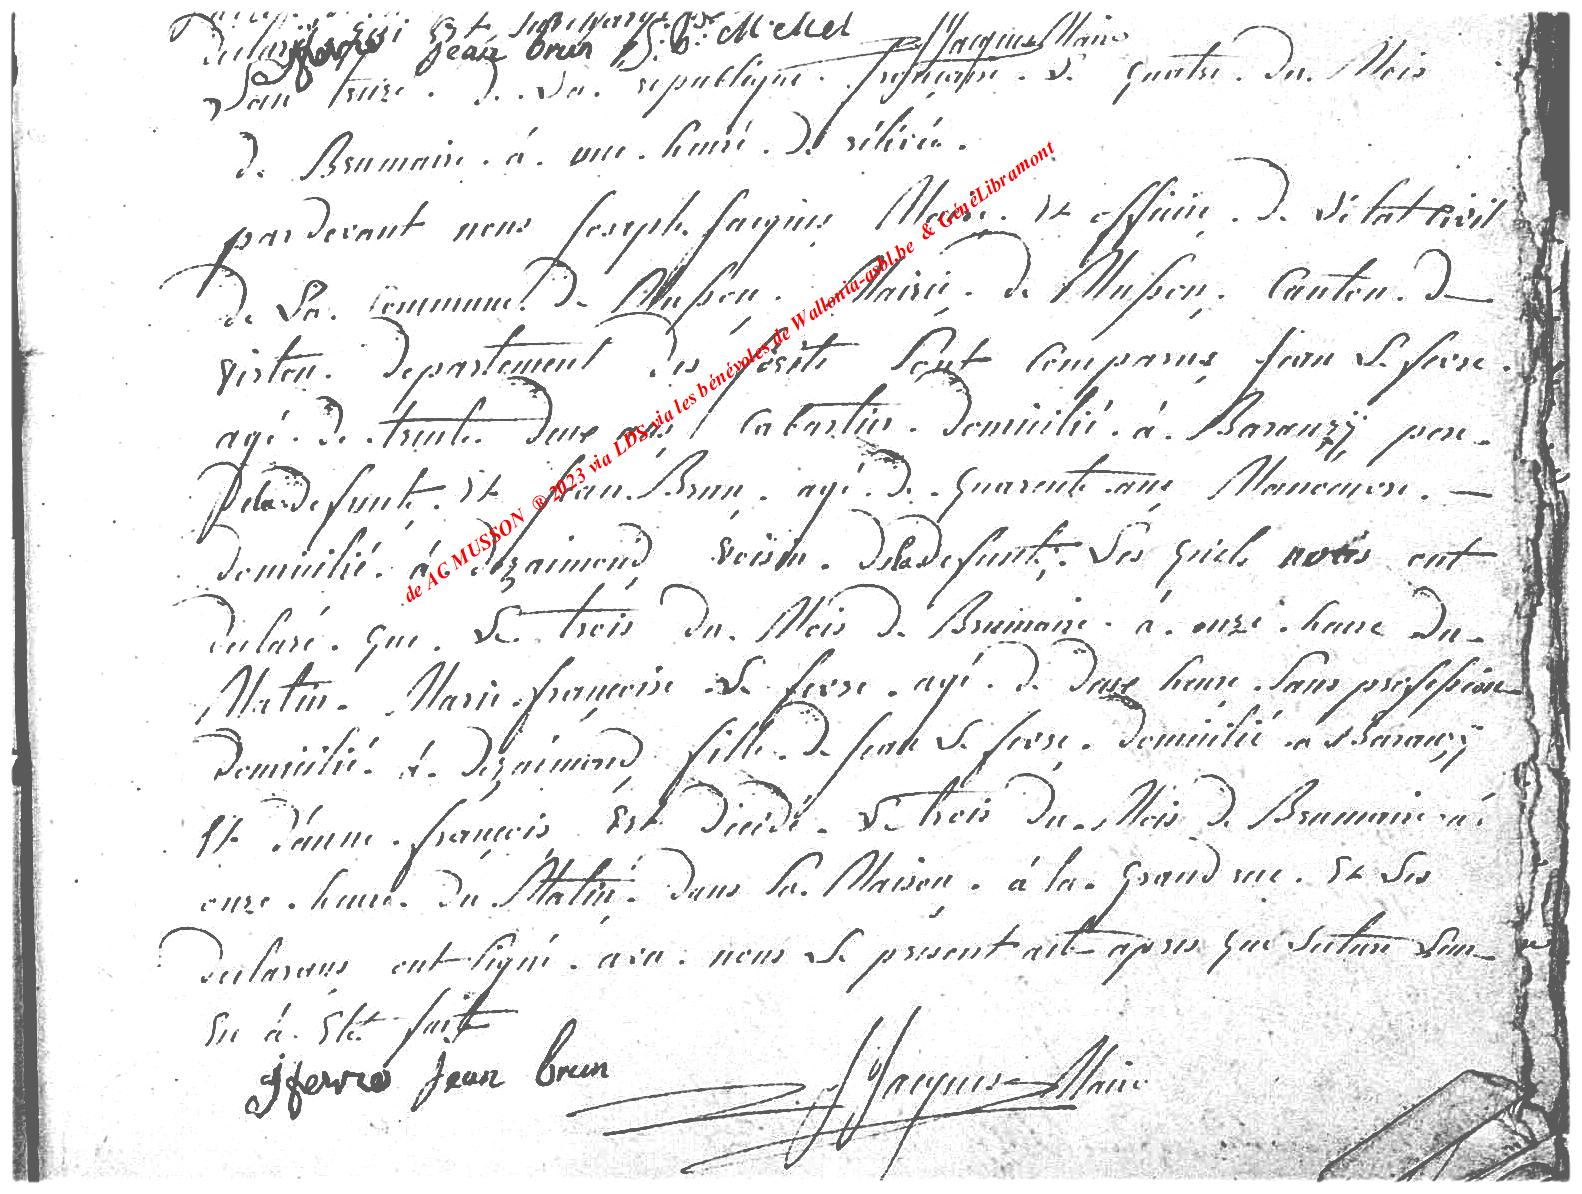 Jean brun J. bte Michel JJacques Maire
L'an treize. de. La. republique. française. Le quatre. du. Mois
de Brumaire. à. une. heure. de relevée.
pardevant nous Joseph Jacques Maire. Et officier. de L'état Civil
de La. Commune. De Musson. Mairie. de Musson. Canton. de
Virton. Departement des forêts Sont Comparus Jean Le fevre.
agé. de trente. Deux ans Cabartier. Domicilié. à. Baranzÿ pere.
Deladefunte. Et Jean. Brun. agé. de. quarente ans Manœuvre.
domicilié. à dezaimond Voisin. deladefunte. Les quels nous ont
declaré. que. Le. trois du. Mois de Brumaire. à. onze. heure du.
Matin. Marie. françoise. Le fevre. agé. de Deux heure. Sans profession
Domicilié. à. dezaimond fille. de Jean Le fevre. Domicilié à Baranzÿ
Et d'anne. françois Est Decedé. Le trois du. Mois de Brumaire à
onze. heure. du. Matin. dans La. Maison. à la. grand rue. Et Les
declarans ont signé. avec. nous Le présent act apres que lecture Leur
En à. Eté fait
Jfevre Jean brun JJacques Maire
de AC MUSSON ® 2023 via LDS via les bénévoles de Wallonia-asbl.be & GénéLibramont